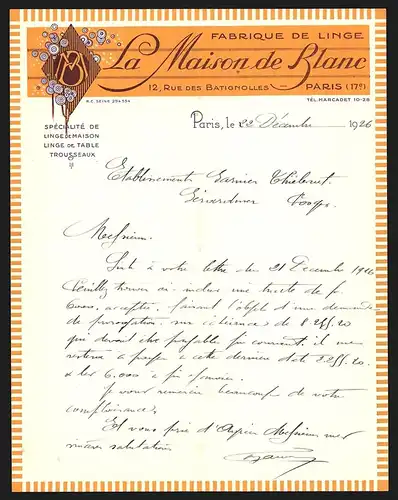 FABRIQUE DE LINGE
La Maison de Blanc
12, RUE DES BATIGNOLLES — PARIS (17e)
R.C. SEINE 294.554
TEL. MARCADET 10-28
SPÉCIALITÉ DE
LINGE DE MAISON
LINGE DE TABLE
TROUSSEAUX
Paris, le 23 Décembre 1926
Etablissements Garnier Thiebaut
Gérardmer Vosges
Messieurs
Suite à votre lettre du 21 Décembre 1926
Veuillez trouver ci inclus une traite de f
6000. acceptée, faisant l'objet d'une demande
de prorogation, sur échéance de 8.255.20
qui devait être payable fin courant, il me
restera à payer à cette dernière date 2.255.20
& les 6.000 à fin
Je vous remercie beaucoup de votre
complaisance
Et vous prie d'agréer Messieurs mes
sincères salutations